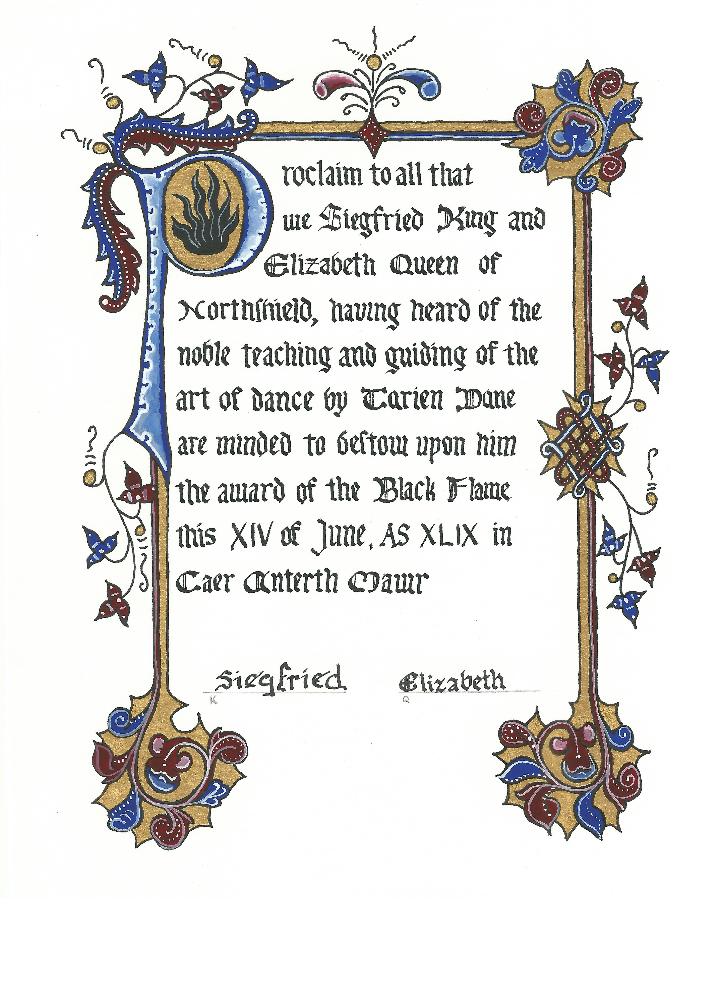 Proclaim to all that
we Siegfried King and
Elizabeth Queen of
Northshield, having heard of the
noble teaching and guiding of the
art of dance by Tarien Dane
are minded to bestow upon him
the award of the Black Flame
this XIV of June, AS XLIX in
Caer Anterth Mawr
Siegfried Elizabeth
K Q